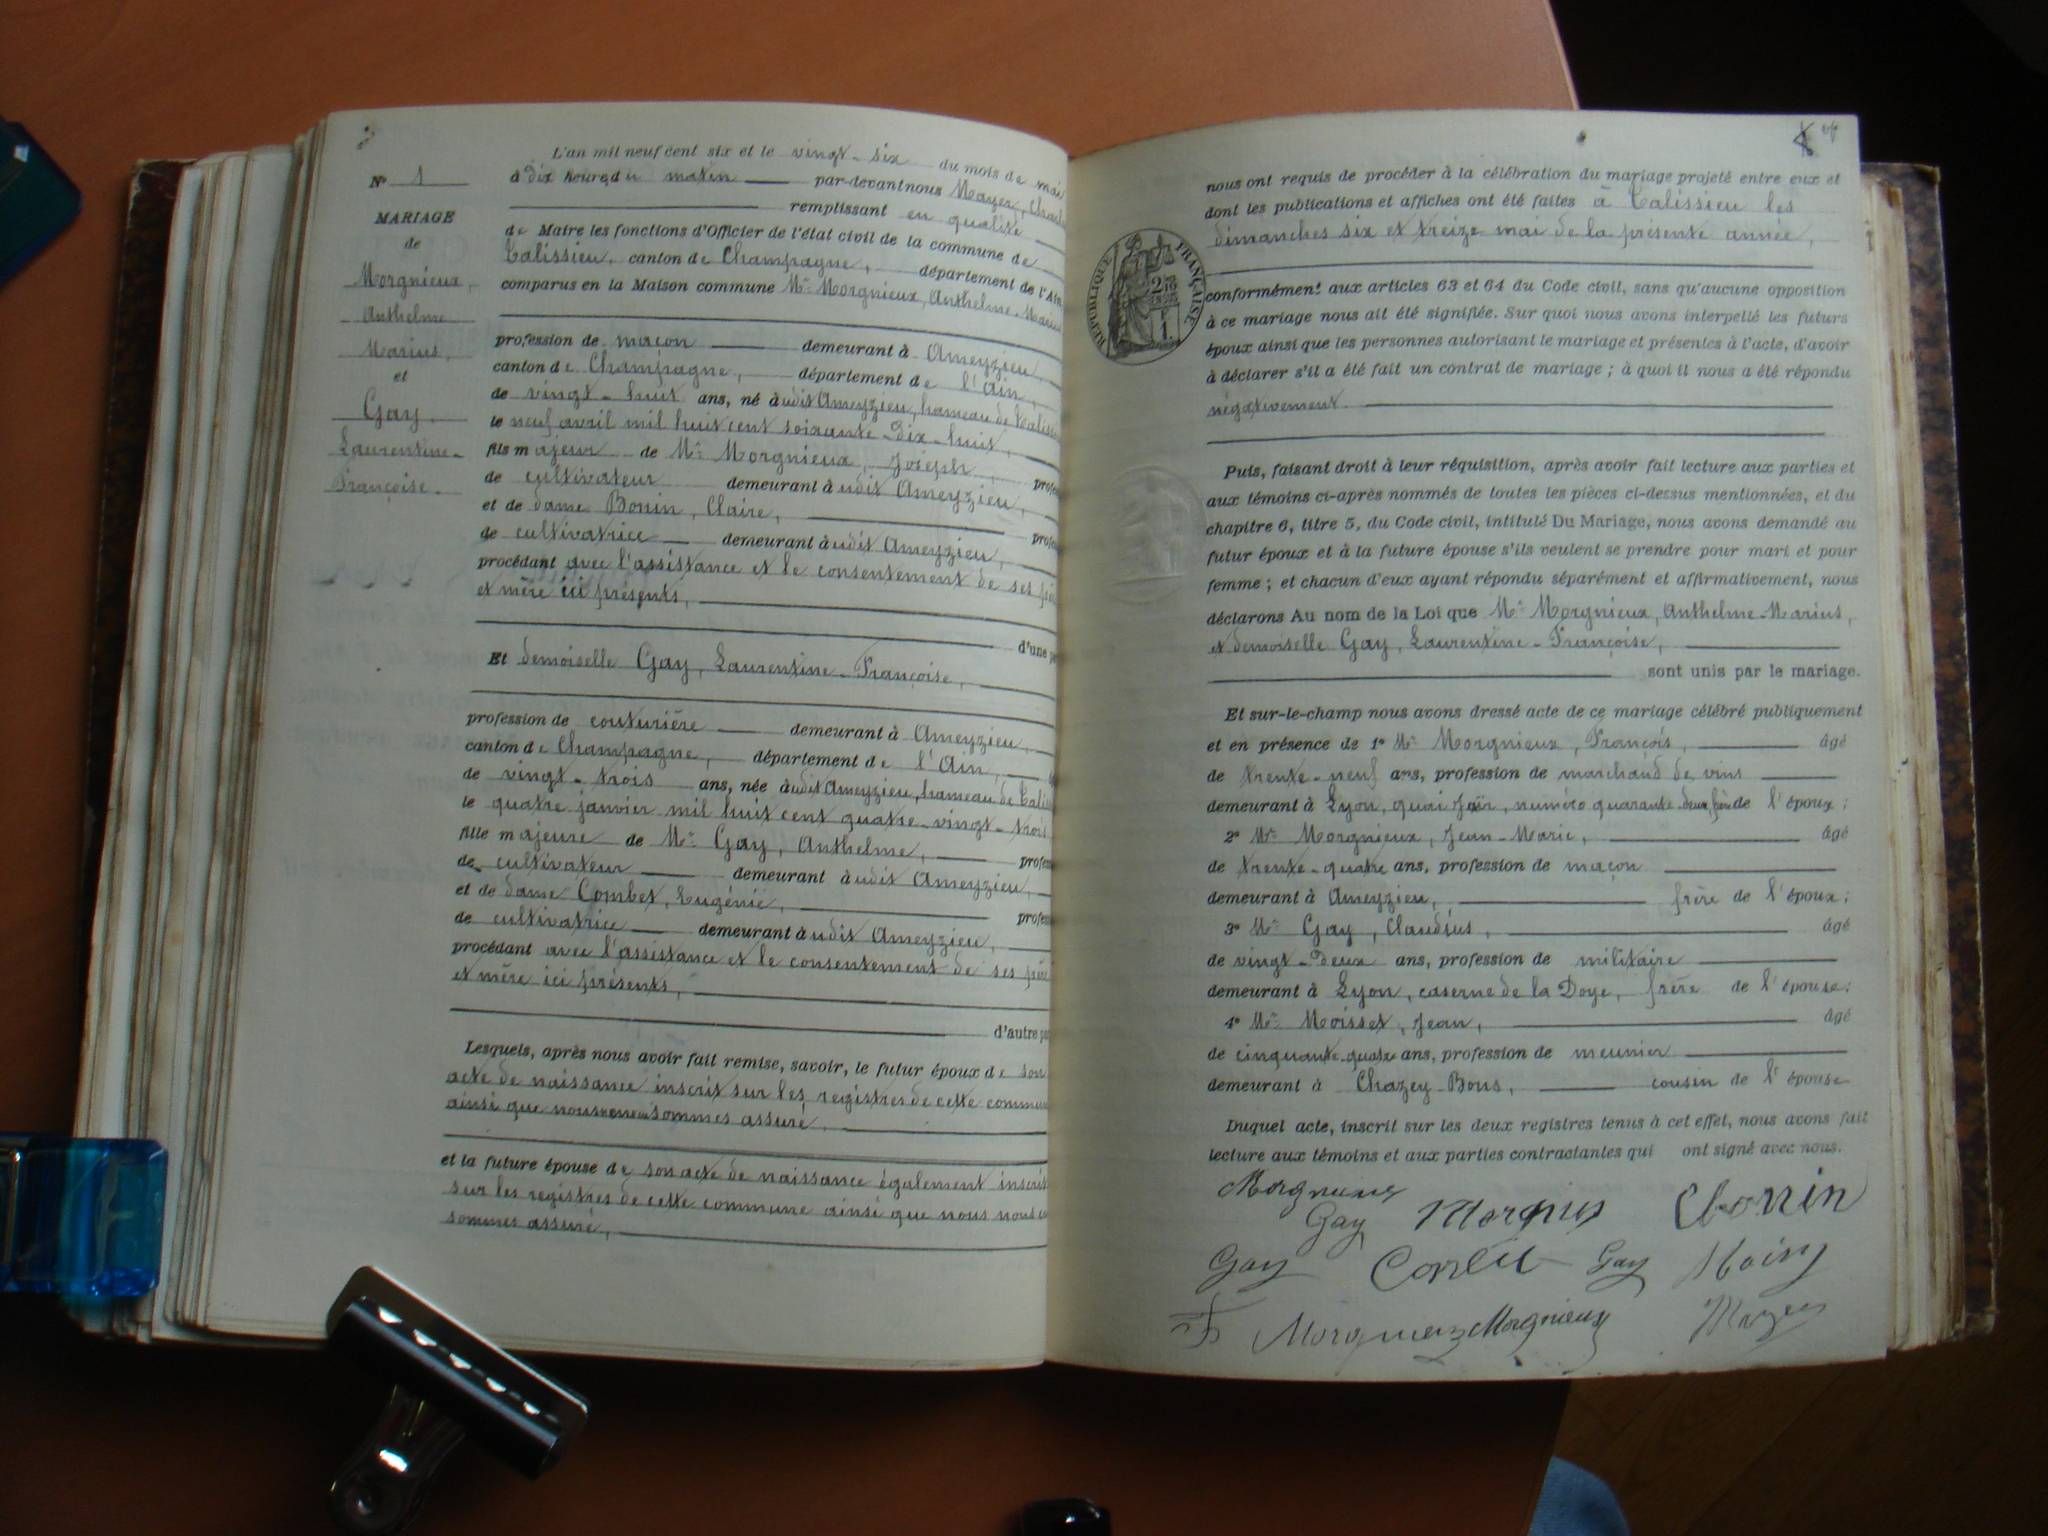 N° 1
MARIAGE
de
Morgnieux,
Anthelme
Marius,
et
Gay,
Laurentine-
Françoise.
L'an mil neuf cent six et le vingt-six du mois de mai
à dix heures du matin par-devant nous Mayer, Charles
remplissant en qualité
de Maire les fonctions d'Officier de l'état civil de la commune de
Talissieu, canton de Champagne, département de l'Ain
comparus en la Maison commune Mr Morgnieux, Anthelme-Marius
profession de maçon demeurant à Ameyzieu,
canton de Champagne, département de l'Ain,
de vingt-huit ans, né audit Ameyzieu, hameau de Talissieu
le neuf avril mil huit cent soixante-dix-huit,
fils majeur de Mr Morgnieux, Joseph, profes
de cultivateur demeurant audit Ameyzieu,
et de dame Bonin, Claire, profes
de cultivatrice demeurant audit Ameyzieu,
procédant avec l'assistance et le consentement de ses père
et mère ici présents,
d'une pa
Et demoiselle Gay, Laurentine-Françoise,
profession de couturière demeurant à Ameyzieu,
canton de Champagne, département de l'Ain,
de vingt-trois ans, née audit Ameyzieu, hameau de Talis
le quatre janvier mil huit cent quatre-vingt-trois
fille majeure de Mr Gay, Anthelme, profes
de cultivateur demeurant audit Ameyzieu,
et de dame Combet, Eugénie, profes
de cultivatrice demeurant audit Ameyzieu,
procédant avec l'assistance et le consentement de ses père
et mère ici présents,
d'autre pa
Lesquels, après nous avoir fait remise, savoir, le futur époux de son
acte de naissance inscrit sur les registres de cette commune
ainsi que nous nous en sommes assuré,
et la future épouse de son acte de naissance également inscrit
sur les registres de cette commune ainsi que nous nous en
sommes assuré,
nous ont requis de procéder à la célébration du mariage projeté entre eux et
dont les publications et affiches ont été faites à Talissieu les
dimanches six et treize mai de la présente année,
RÉPUBLIQUE FRANÇAISE
conformément aux articles 63 et 64 du Code civil, sans qu'aucune opposition
à ce mariage nous ait été signifiée. Sur quoi nous avons interpellé les futurs
époux ainsi que les personnes autorisant le mariage et présentes à l'acte, d'avoir
à déclarer s'il a été fait un contrat de mariage ; à quoi il nous a été répondu
négativement.
Puis, faisant droit à leur réquisition, après avoir fait lecture aux parties et
aux témoins ci-après nommés de toutes les pièces ci-dessus mentionnées, et du
chapitre 6, titre 5, du Code civil, intitulé Du Mariage, nous avons demandé au
futur époux et à la future épouse s'ils veulent se prendre pour mari et pour
femme ; et chacun d'eux ayant répondu séparément et affirmativement, nous
déclarons Au nom de la Loi que Mr Morgnieux, Anthelme-Marius,
et demoiselle Gay, Laurentine-Françoise,
sont unis par le mariage.
Et sur-le-champ nous avons dressé acte de ce mariage célébré publiquement
et en présence de 1° Mr Morgnieux, François, âgé
de trente-neuf ans, profession de marchand de vins
demeurant à Lyon, quai Jaÿr, numéro quarante-deux, frère de l'époux ;
2° Mr Morgnieux, Jean-Marie, âgé
de trente-quatre ans, profession de maçon
demeurant à Ameyzieu, frère de l'époux ;
3° Mr Gay, Claudius, âgé
de vingt-deux ans, profession de militaire
demeurant à Lyon, caserne de la Doye, frère de l'épouse ;
4° Mr Moisset, Jean, âgé
de cinquante-quatre ans, profession de meunier
demeurant à Chazey-Bons, cousin de l'épouse
Duquel acte, inscrit sur les deux registres tenus à cet effet, nous avons fait
lecture aux témoins et aux parties contractantes qui ont signé avec nous.
Morgnieux
Gay
Gay Gay
Morgnieux Morgnieux Mayer